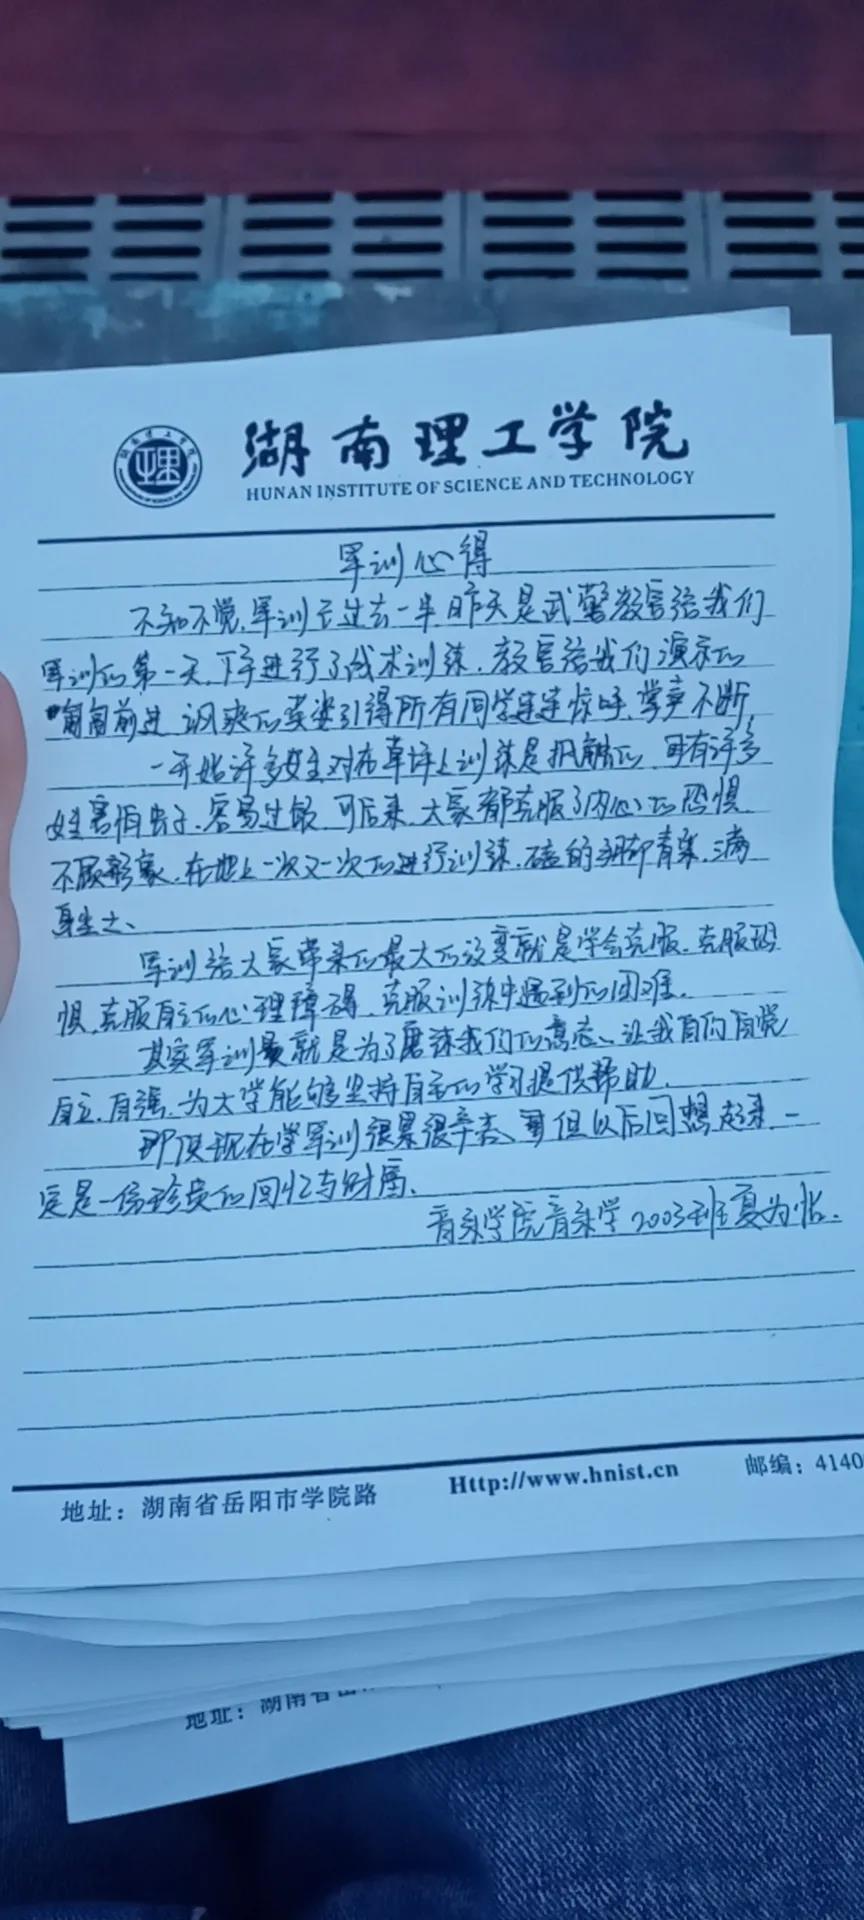 湖南理工学院
HUNAN INSTITUTE OF SCIENCE AND TECHNOLOGY
军训心得
不知不觉,军训已过去一半,昨天是武警教官给我们
军训的第一天,下午进行了战术训练,教官给我们演示的
匍匐前进 飒爽的英姿引得所有同学连连惊呼,掌声不断,
一开始许多女生对在草坪上训练是抗触的,且有许多
女生害怕虫子,容易过敏,可后来,大家都克服了内心的恐惧,
不顾形象,在地上一次又一次的进行训练,磕的手脚青紫,满
身尘土、
军训给大家带来的最大的改变就是学会克服,克服恐
惧,克服自己的心理障碍,克服训练中遇到的困难,
其实军训就是为了磨练我们的意志、让我们自觉
自立,自强,为大学能够坚持自主的学习提供帮助,
即便现在学军训很累很辛苦、但以后回想起来,一
定是一份珍贵的回忆与财富、
音乐学院音乐学2003班夏为怡.
地址：湖南省岳阳市学院路
Http://www.hnist.cn
邮编：4140
地址：湖南省岳